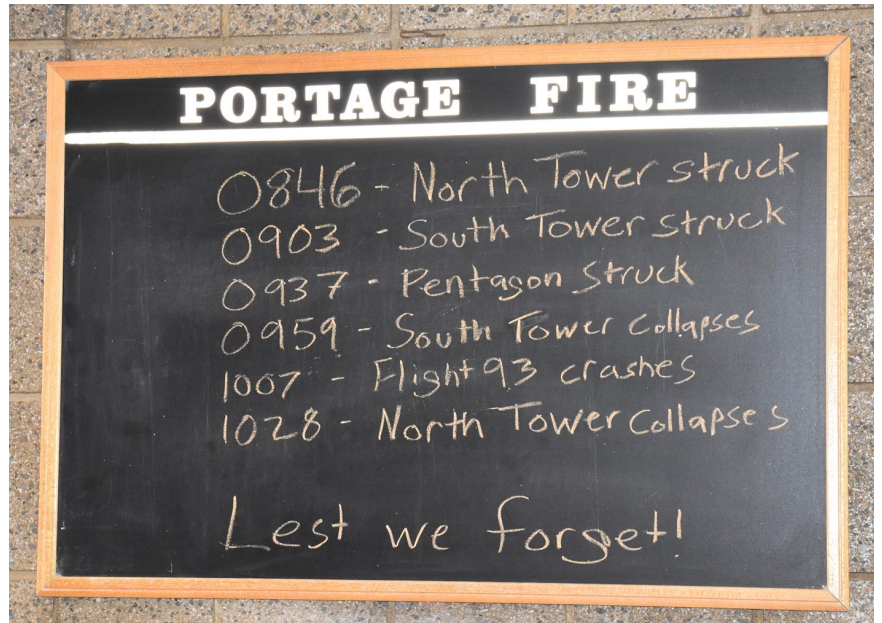 PORTAGE FIRE
0846 - North Tower struck
0903 - South Tower struck
0937 - Pentagon Struck
0959 - South Tower collapses
1007 - Flight 93 crashes
1028 - North Tower collapses
Lest we forget!